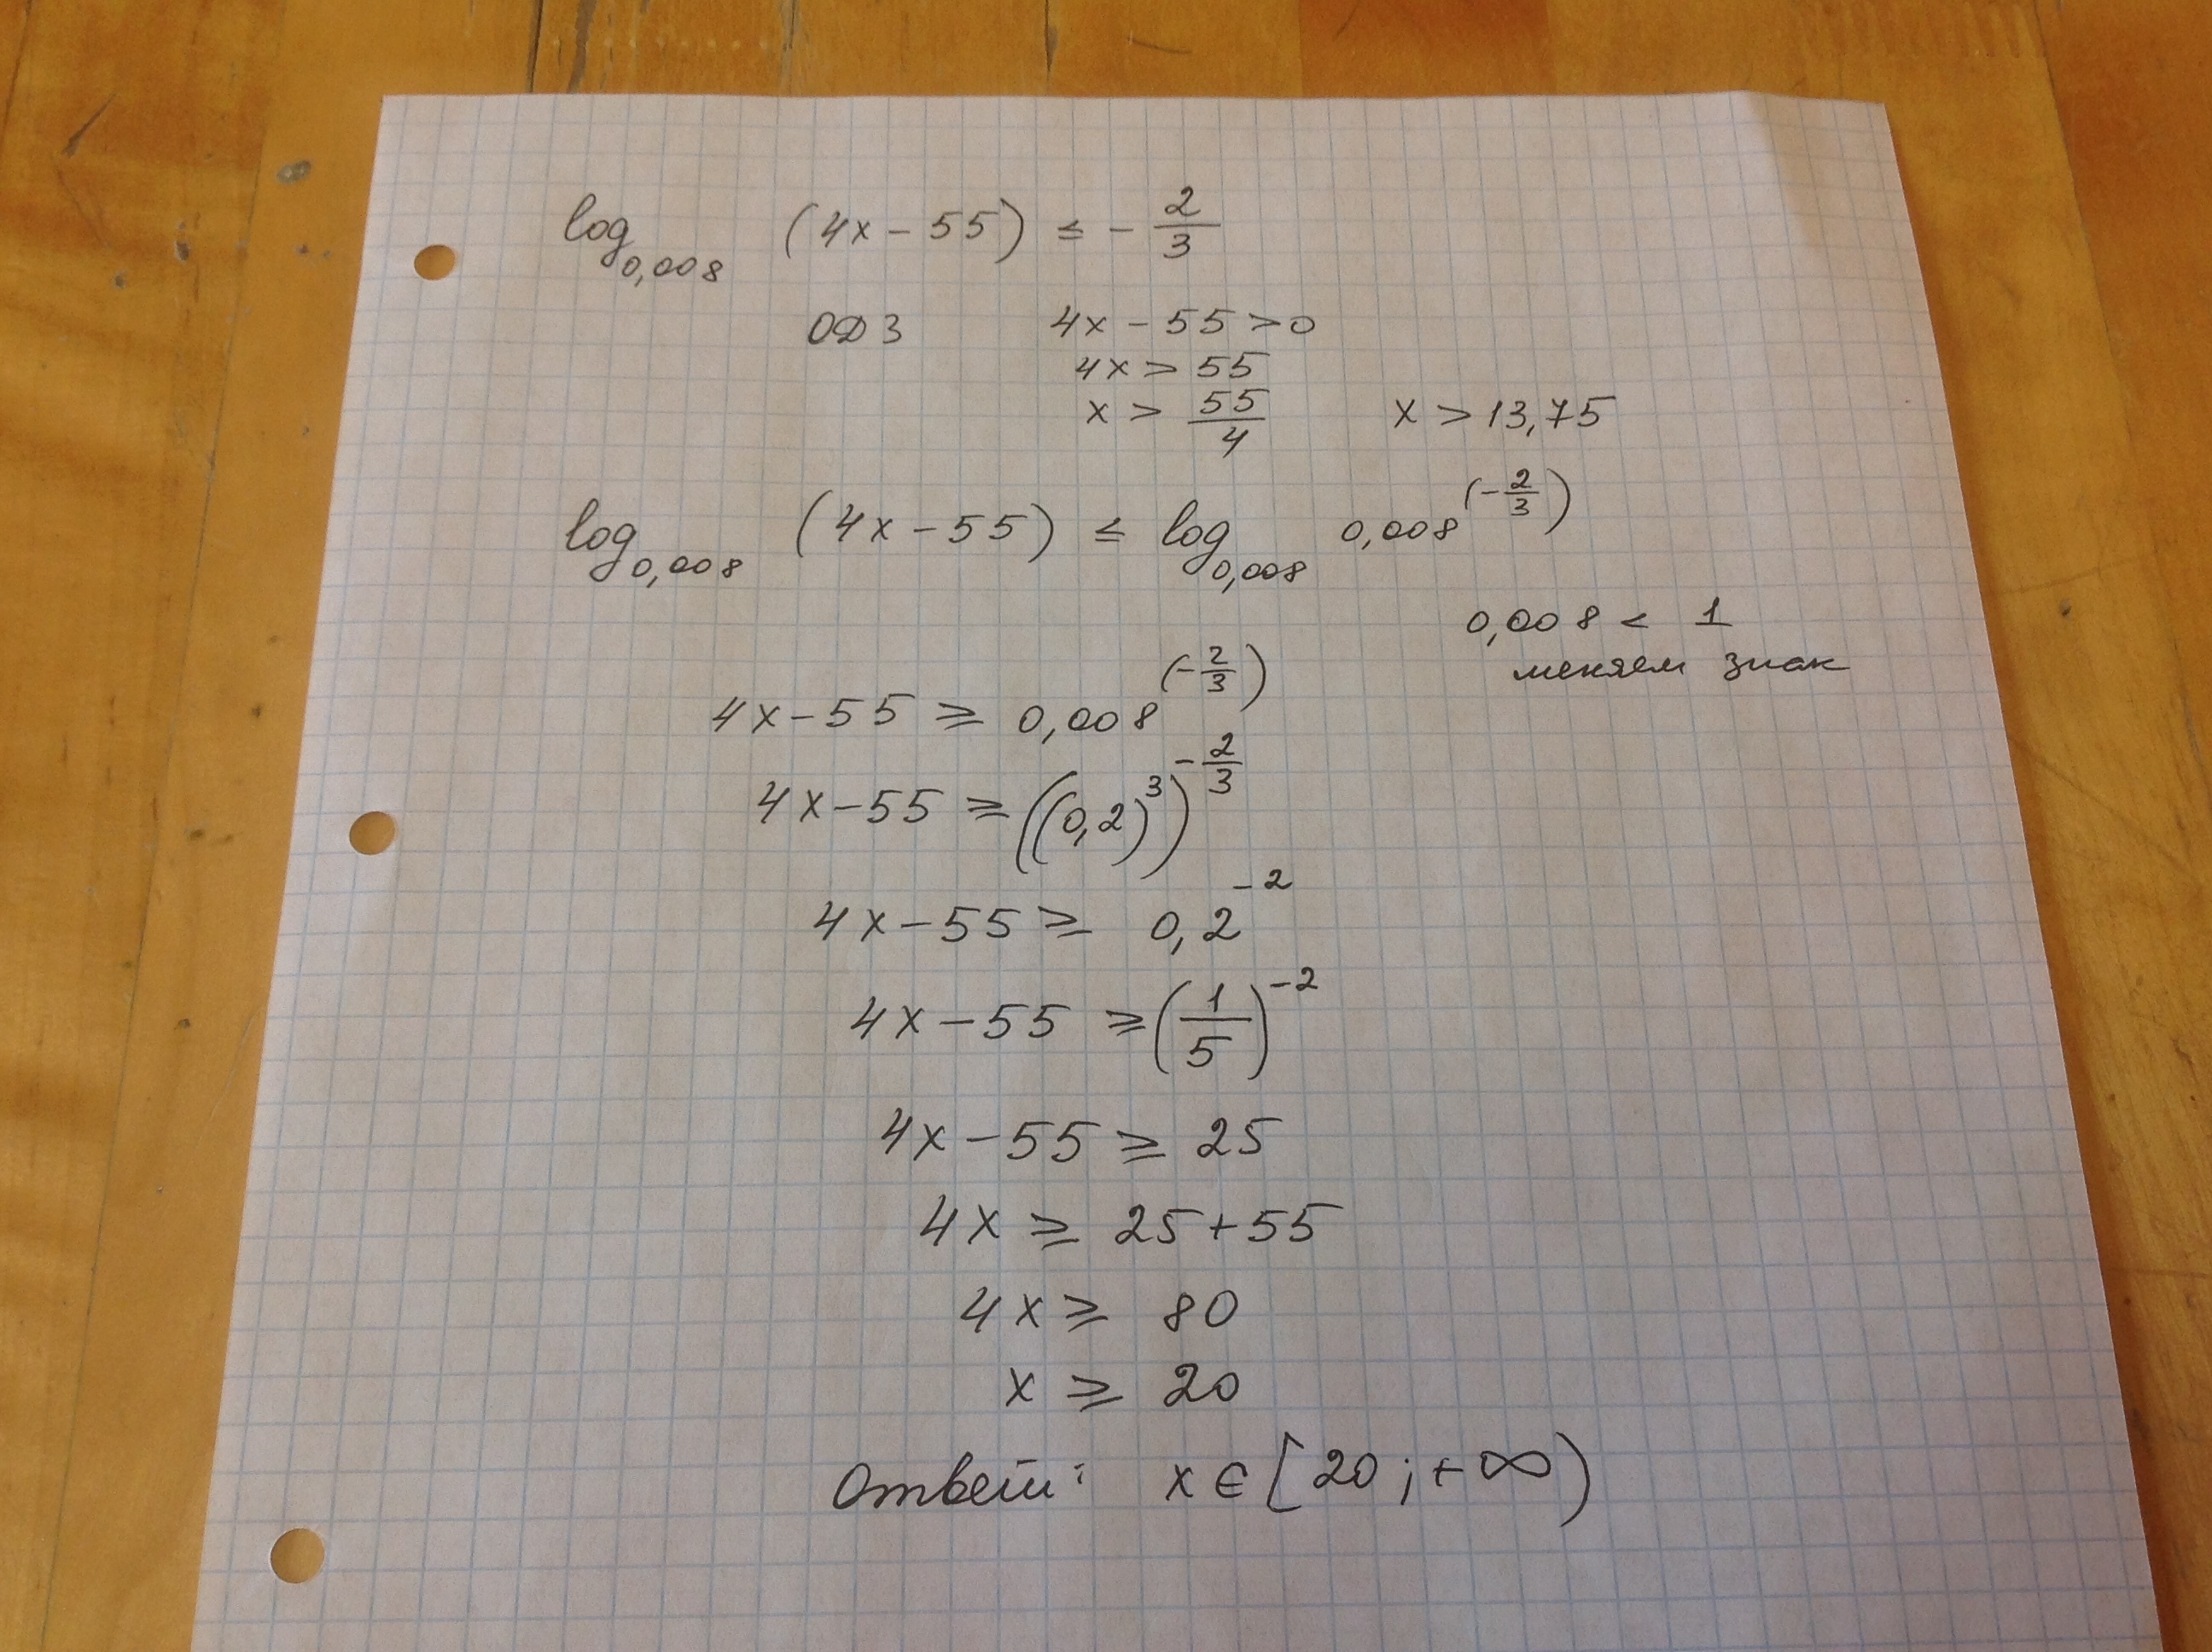 log₀,₀₀₈ (4x − 55) ≤ − 2/3
ОДЗ 4x − 55 > 0
4x > 55
x > 55/4 x > 13,75
log₀,₀₀₈ (4x − 55) ≤ log₀,₀₀₈ 0,008^(−2/3)
0,008 < 1
меняем знак
4x − 55 ≥ 0,008^(−2/3)
4x − 55 ≥ ((0,2)³)^−2/3
4x − 55 ≥ 0,2⁻²
4x − 55 ≥ (1/5)⁻²
4x − 55 ≥ 25
4x ≥ 25 + 55
4x ≥ 80
x ≥ 20
Ответ: x ∈ [20; +∞)